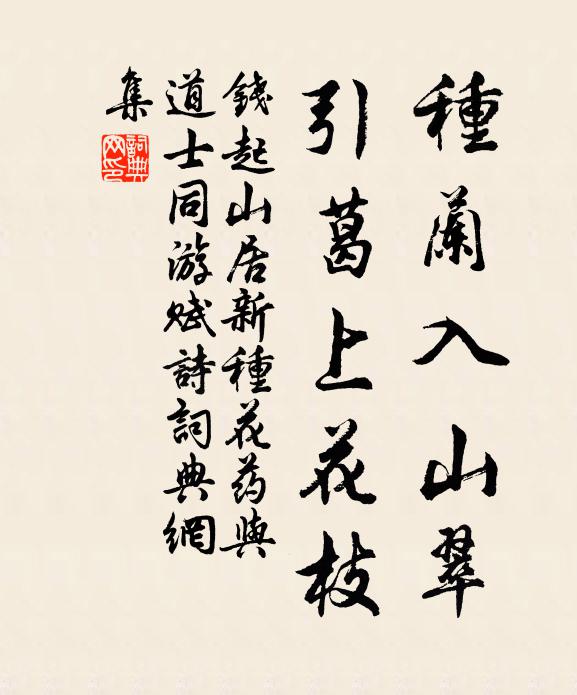 種蘭入山翠
引葛上花枝
錢起山居新種花药與
道士同游赋詩詞典網
集
詞典網印